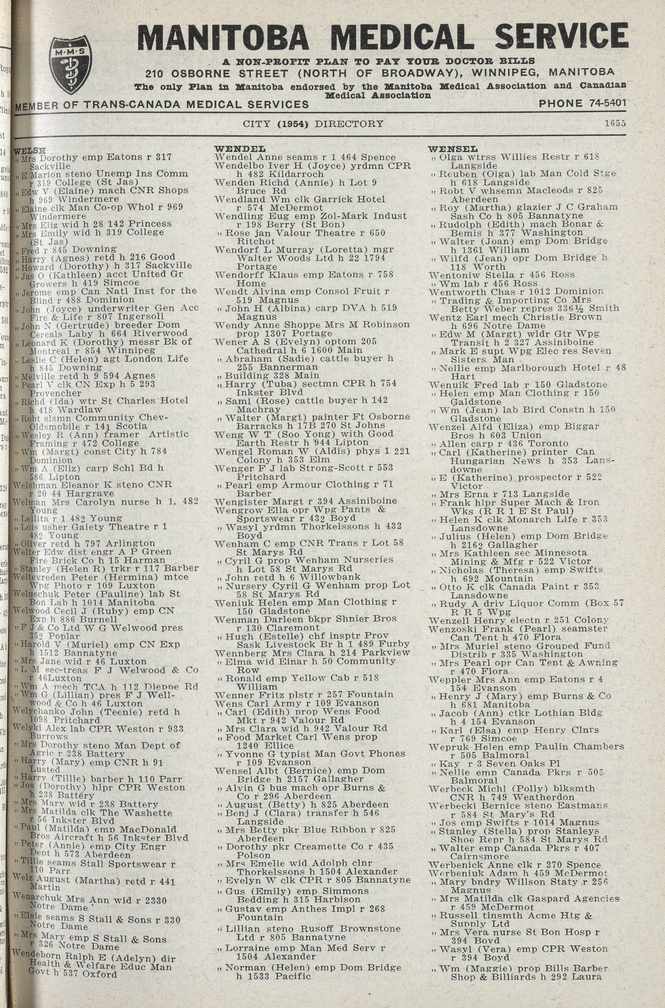 M·M·S
MANITOBA MEDICAL SERVICE
A NON-PROFIT PLAN TO PAY YOUR DOCTOR BILLS
210 OSBORNE STREET (NORTH OF BROADWAY), WINNIPEG, MANITOBA
The only Plan in Manitoba endorsed by the Manitoba Medical Association and Canadian
Medical Association
MEMBER OF TRANS-CANADA MEDICAL SERVICES PHONE 74-5401
CITY (1954) DIRECTORY 1655
WELSH
" Mrs Dorothy emp Eatons r 317
Sackville
" E Marion steno Unemp Ins Comm
r 319 College (St Jas)
" Edw V (Elaine) mach CNR Shops
h 969 Windermere
" Elaine clk Man Co-op Whol r 969
Windermere
" Mrs Eliz wid h 28 142 Princess
" Mrs Emily wid h 319 College
(St Jas)
" Fred r 845 Downing
" Harry (Agnes) retd h 216 Good
" Howard (Dorothy) h 317 Sackville
" Jas O (Kathleen) acct United Gr
Growers h 419 Simcoe
" Jerome emp Can Natl Inst for the
Blind r 488 Dominion
" John (Joyce) underwriter Gen Acc
Fire & Life r 807 Ingersoll
" John N (Gertrude) breeder Dom
Cereals Laby h 664 Riverwood
" Leonard K (Dorothy) messr Bk of
Montreal r 854 Winnipeg
" Leslie C (Helen) agt London Life
h 845 Downing
" Melville retd h 9 594 Agnes
" Pearl V clk CN Exp h 5 293
Provencher
" Richd (Ida) wtr St Charles Hotel
h 418 Wardlaw
" Robt slsmn Community Chev-
Oldsmobile r 141 Scotia
" Wesley R (Ann) framer Artistic
Framing r 472 College
" Wm (Margt) const City h 784
Dominion
" Wm A (Eliz) carp Schl Bd h
586 Lipton
Welshman Eleanor K steno CNR
r 20 44 Hargrave
Welman Mrs Carolyn nurse h 1, 482
Young
" Lellita r 1 482 Young
" Lois usher Gaiety Theatre r 1
482 Young
" Oliver retd h 797 Arlington
Welter Edw dist engr A P Green
Fire Brick Co h 15 Harman
" Stanley (Helen R) trkr r 117 Barber
Weltevreden Peter (Hermina) mtce
Wpg Photo r 109 Luxton
Weluschuk Peter (Pauline) lab St
Bon Lab h 1014 Manitoba
Welwood Cecil J (Ruby) emp CN
Exp h 886 Burnell
" F J & Co Ltd W G Welwood pres
352 Poplar
" Harold V (Muriel) emp CN Exp
h 1512 Bannatyne
" Mrs Jane wid r 46 Luxton
" L M sec-treas F J Welwood & Co
r 46 Luxton
" Wm A mech TCA h 112 Dieppe Rd
" Wm G (Lillian) pres F J Well-
wood & Co h 46 Luxton
Welychanko John (Teenie) retd h
1098 Pritchard
Welyki Alex lab CPR Weston r 933
Burrows
" Mrs Dorothy steno Man Dept of
Agric r 238 Battery
" Harry (Mary) emp CNR h 91
Lusted
" Harry (Tillie) barber h 110 Parr
" Jos (Dorothy) hlpr CPR Weston
h 238 Battery
" Mrs Mary wid r 238 Battery
" Mrs Matilda clk The Washette
r 56 Inkster Blvd
" Paul (Matilda) emp MacDonald
Bros Aircraft h 56 Inkster Blvd
" Peter (Annie) emp City Engr
Dept h 573 Aberdeen
" Tillie seams Stall Sportswear r
110 Parr
Welz August (Martha) retd r 441
Martin
Wenarchuk Mrs Ann wid r 2330
Notre Dame
" Elsie seams S Stall & Sons r 330
Notre Dame
" Mrs Mary emp S Stall & Sons
r 326 Notre Dame
Wendeborn Ralph E (Adelyn) dir
Health & Welfare Educ Man
Govt h 537 Oxford
WENDEL
Wendel Anne seams r 1 464 Spence
Wendelbo Iver H (Joyce) yrdmn CPR
h 482 Kildarroch
Wenden Richd (Annie) h Lot 9
Bruce Rd
Wendland Wm clk Garrick Hotel
r 574 McDermot
Wendling Eug emp Zol-Mark Indust
r 198 Berry (St Bon)
" Rose jan Valour Theatre r 650
Ritchot
Wendorf L Murray (Loretta) mgr
Walter Woods Ltd h 22 1794
Portage
Wendorff Klaus emp Eatons r 758
Home
Wendt Alvina emp Consol Fruit r
519 Magnus
" John H (Albina) carp DVA h 519
Magnus
Wendy Anne Shoppe Mrs M Robinson
prop 1307 Portage
Wener A S (Evelyn) optom 205
Cathedral h 6 1600 Main
" Abraham (Sadie) cattle buyer h
255 Bannerman
" Building 328 Main
" Harry (Tuba) sectmn CPR h 754
Inkster Blvd
" Saml (Rose) cattle buyer h 142
Machray
" Walter (Margt) painter Ft Osborne
Barracks h 17B 270 St Johns
Weng W T (Soo Yong) with Good
Earth Restr h 944 Lipton
Wengel Roman W (Aldis) phys 1 221
Colony h 353 Elm
Wenger F J lab Strong-Scott r 553
Pritchard
" Pearl emp Armour Clothing r 71
Barber
Wengister Margt r 394 Assiniboine
Wengrow Ella opr Wpg Pants &
Sportswear r 432 Boyd
" Wasyl yrdmn Thorkelssons h 432
Boyd
Wenham C emp CNR Trans r Lot 58
St Marys Rd
" Cyril G prop Wenham Nurseries
h Lot 58 St Marys Rd
" John retd h 6 Willowbank
" Nursery Cyril G Wenham prop Lot
58 St Marys Rd
Weniuk Helen emp Man Clothing r
150 Gladstone
Wenman Darleen bkpr Shnier Bros
r 130 Claremont
" Hugh (Estelle) chf insptr Prov
Sask Livestock Br h 1 489 Furby
Wennberg Mrs Clara h 214 Parkview
" Elma wid Einar h 50 Community
Row
" Ronald emp Yellow Cab r 518
William
Wenner Fritz plstr r 257 Fountain
Wens Carl Army r 109 Evanson
" Carl (Edith) prop Wens Food
Mkt r 942 Valour Rd
" Mrs Clara wid h 942 Valour Rd
" Food Market Carl Wens prop
1240 Ellice
" Yvonne G typist Man Govt Phones
r 109 Evanson
Wensel Albt (Bernice) emp Dom
Bridge h 2157 Gallagher
" Alvin G bus mach opr Burns &
Co r 296 Aberdeen
" August (Betty) h 825 Aberdeen
" Benj J (Clara) transfer h 546
Langside
" Mrs Betty pkr Blue Ribbon r 825
Aberdeen
" Dorothy pkr Creamette Co r 435
Polson
" Mrs Emelie wid Adolph clnr
Thorkelssons h 1504 Alexander
" Evelyn W clk CPR r 805 Bannatyne
" Gus (Emily) emp Simmons
Bedding h 315 Harbison
" Gustav emp Anthes Impl r 268
Fountain
" Lillian steno Rusoff Brownstone
Ltd r 805 Bannatyne
" Lorraine emp Man Med Serv r
1504 Alexander
" Norman (Helen) emp Dom Bridge
h 1533 Pacific
WENSEL
" Olga wtrss Willies Restr r 618
Langside
" Reuben (Olga) lab Man Cold Stge
h 618 Langside
" Robt V whsemn Macleods r 825
Aberdeen
" Roy (Martha) glazier J C Graham
Sash Co h 805 Bannatyne
" Rudolph (Edith) mach Bonar &
Bemis h 377 Washington
" Walter (Joan) emp Dom Bridge
h 1361 William
" Wilfd (Jean) opr Dom Bridge h
118 Worth
Wentoniw Stella r 456 Ross
" Wm lab r 456 Ross
Wentworth Chas r 1012 Dominion
" Trading & Importing Co Mrs
Betty Weber repres 336½ Smith
Wentz Earl mech Christie Brown
h 696 Notre Dame
" Edw M (Margt) widr Gtr Wpg
Transit h 2 327 Assiniboine
" Mark E supt Wpg Elec res Seven
Sisters Man
" Nellie emp Marlborough Hotel r 48
Hart
Wenuik Fred lab r 150 Gladstone
" Helen emp Man Clothing r 150
Galdstone
" Wm (Jean) lab Bird Constn h 150
Gladstone
Wenzel Alfd (Eliza) emp Biggar
Bros h 603 Union
" Allen carp r 436 Toronto
" Carl (Katherine) printer Can
Hungarian News h 353 Lans-
downe
" E (Katherine) prospector r 522
Victor
" Mrs Erna r 713 Langside
" Frank hlpr Super Mach & Iron
Wks (R R 1 E St Paul)
" Helen K clk Monarch Life r 353
Lansdowne
" Julius (Helen) emp Dom Bridge
h 2162 Gallagher
" Mrs Kathleen sec Minnesota
Mining & Mfg r 522 Victor
" Nicholas (Theresa) emp Swifts
h 692 Mountain
" Otto K clk Canada Paint r 353
Lansdowne
" Rudy A driv Liquor Comm (Box 57
R R 5 Wpg
Wenzell Henry electn r 251 Colony
Wenzoski Frank (Pearl) seamster
Can Tent h 470 Flora
" Mrs Muriel steno Grouped Fund
Distrib r 335 Washington
" Mrs Pearl opr Can Tent & Awning
r 470 Flora
Weppler Mrs Ann emp Eatons r 4
154 Evanson
" Henry J (Mary) emp Burns & Co
h 681 Manitoba
" Jacob (Ann) ctkr Lothian Bldg
h 4 154 Evanson
" Karl (Elsa) emp Henry Clnrs
r 769 Simcoe
Wepruk Helen emp Paulin Chambers
r 505 Balmoral
" Kay r 3 Seven Oaks Pl
" Nellie emp Canada Pkrs r 505
Balmoral
Werbeck Michl (Polly) blksmth
CNR h 749 Weatherdon
Werbecki Bernice steno Eastmans
r 584 St Mary's Rd
" Jos emp Swifts r 1014 Magnus
" Stanley (Stella) prop Stanleys
Shoe Repr h 584 St Marys Rd
" Walter emp Canada Pkrs r 407
Cairnsmore
Werbenick Anne clk r 270 Spence
Werbeniuk Adam h 459 McDermot
" Mary bndry Willson Staty r 256
Magnus
" Mrs Matilda clk Gaspard Agencies
r 459 McDermot
" Russell tinsmth Acme Htg &
Supply Ltd
" Mrs Vera nurse St Bon Hosp r
394 Boyd
" Wasyl (Vera) emp CPR Weston
r 394 Boyd
" Wm (Maggie) prop Bills Barber
Shop & Billiards h 292 Laura